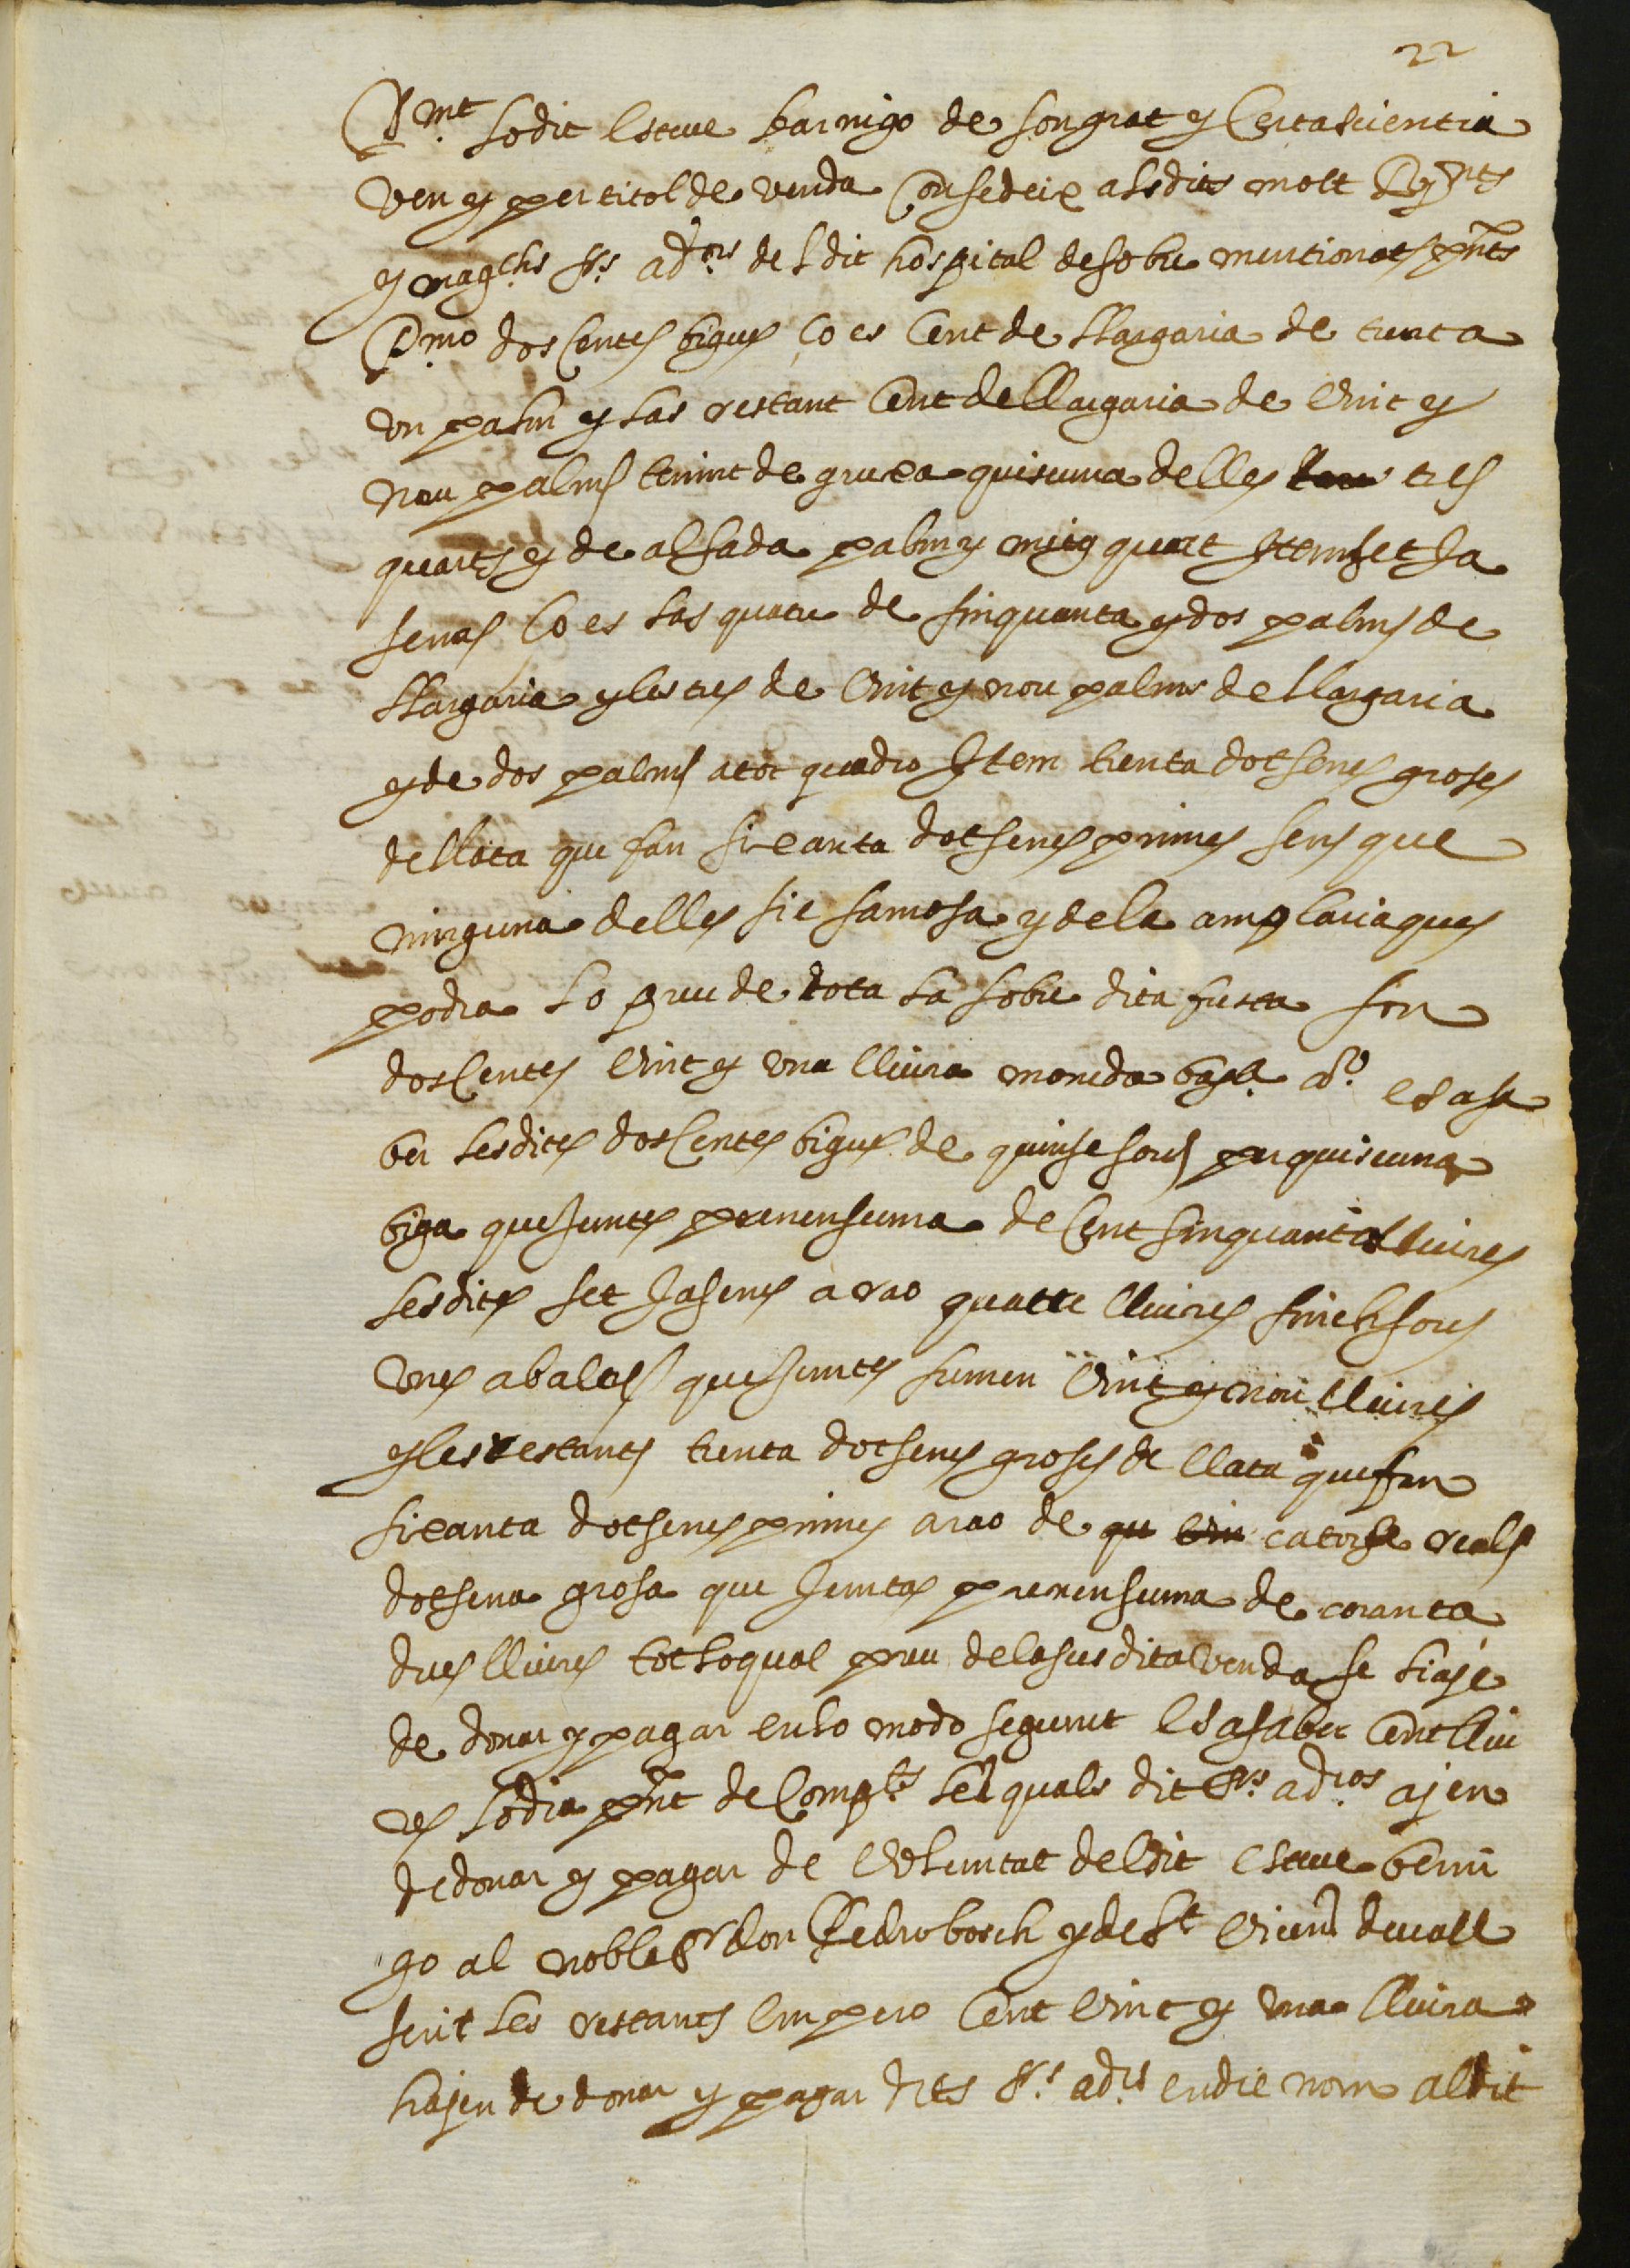 22
P.mt lo dit Esteue barnigo de son grat y Certa sciencia
ven y per titol de venda Consedeix als dits molt R.ts
y mag.chs s.rs ad.ors del dit hospital de sobre mentionats p̃nts
P.mo dos Centes bigues ço es Cent de llargaria de trenta
vn palm y las restant Cent de llargaria de vint y
nou palms tenint de gruxa quiscuna delles tres
quarts y de alsada palm y mitg quart Item set Ja
senas ço es las quatre de sinquanta y dos palms de
llargaria y les tres de vint y nou palms de llargaria
y de dos palms a tot quadro Item trenta dotsenes groses
de llata que fan sixanta dotsenes primes sens que
ninguna delles sie samosa y de la amplaria ques
podra lo preu de tota la sobre dita fusta son
dos Centes vint y vna lliura moneda bar.a ço es a sa
ber les dites dos Centes bigues de quinse sous per quiscuna
biga que Juntes prenen suma de Cent sinquanta lliures
les dites set Jasenes a rao quatre lliures sinch sous
vnes ab altres que Juntes sumen vint y nou lliures
y les restants trenta dotsenes groses de llata que fan
sixanta dotsenes primes a rao de catorse reals
dotsena grosa que Juntas prenen suma de coranta
dues lliures tot lo qual preu de la sus dita venda se li aje
de donar y pagar en lo modo seguent es a saber Cent lliu
res lo dia p̃nt de Comp.ts les quals dits s.rs ad.ors ajen
de donar y pagar de voluntat del dit esteue berni
go al noble s.r don Pedro bosch y de S.t Vicens de uall
serit les restants empero Cent vint y vna lliura
hajen de donar y pagar dits s.rs ad.rs en dit nom al dit